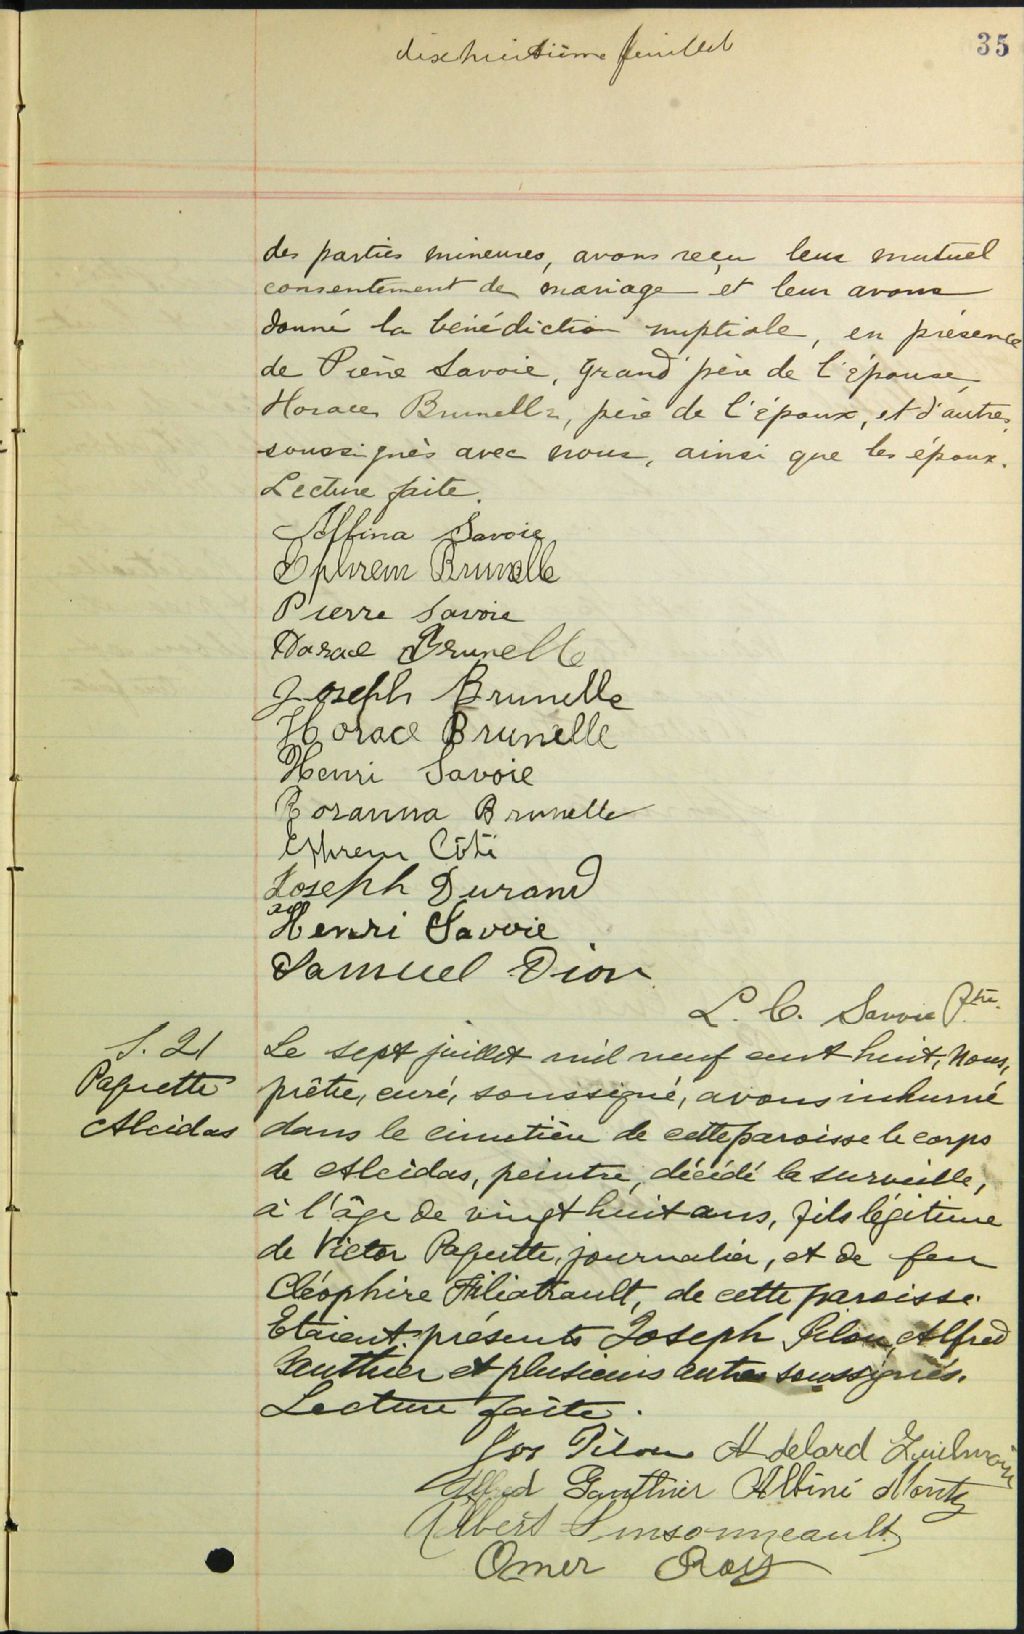 dixhuitième feuillet
35
des parties mineures, avons reçu leur mutuel
consentement de mariage et leur avons
donné la bénédiction nuptiale, en présence
de Pierre Savoie, grand père de l'épouse,
Horace Brunelle, père de l'époux, et d'autres
soussignés avec nous, ainsi que les époux.
Lecture faite.
Savoie
Ephrem Brunelle
Pierre Savoie
Brunelle
Joseph Brunelle
Horace Brunelle
Henri Savoie
Rosanna Brunelle
Ephrem Côté
Joseph Durand
Henri Savoie
Samuel Dion
L. C. Savoie Ptre.
S. 21
Paquette
Alcidas
Le sept juillet mil neuf cent huit, Nous,
prêtre, curé, soussigné, avons inhumé
dans le cimetière de cette paroisse le corps
de Alcidas, peintre, décédé la surveille,
à l'âge de vingt huit ans, fils légitime
de Victor Paquette, journalier, et de feu
Cléophire Filiatrault, de cette paroisse.
Etaient présents Joseph Pilon, Alfred
Gauthier et plusieurs autres soussignés.
Lecture faite.
Jos Pilon Adelard
Alfred Gauthier Albini
Albert Pinsonneault
Omer Roy